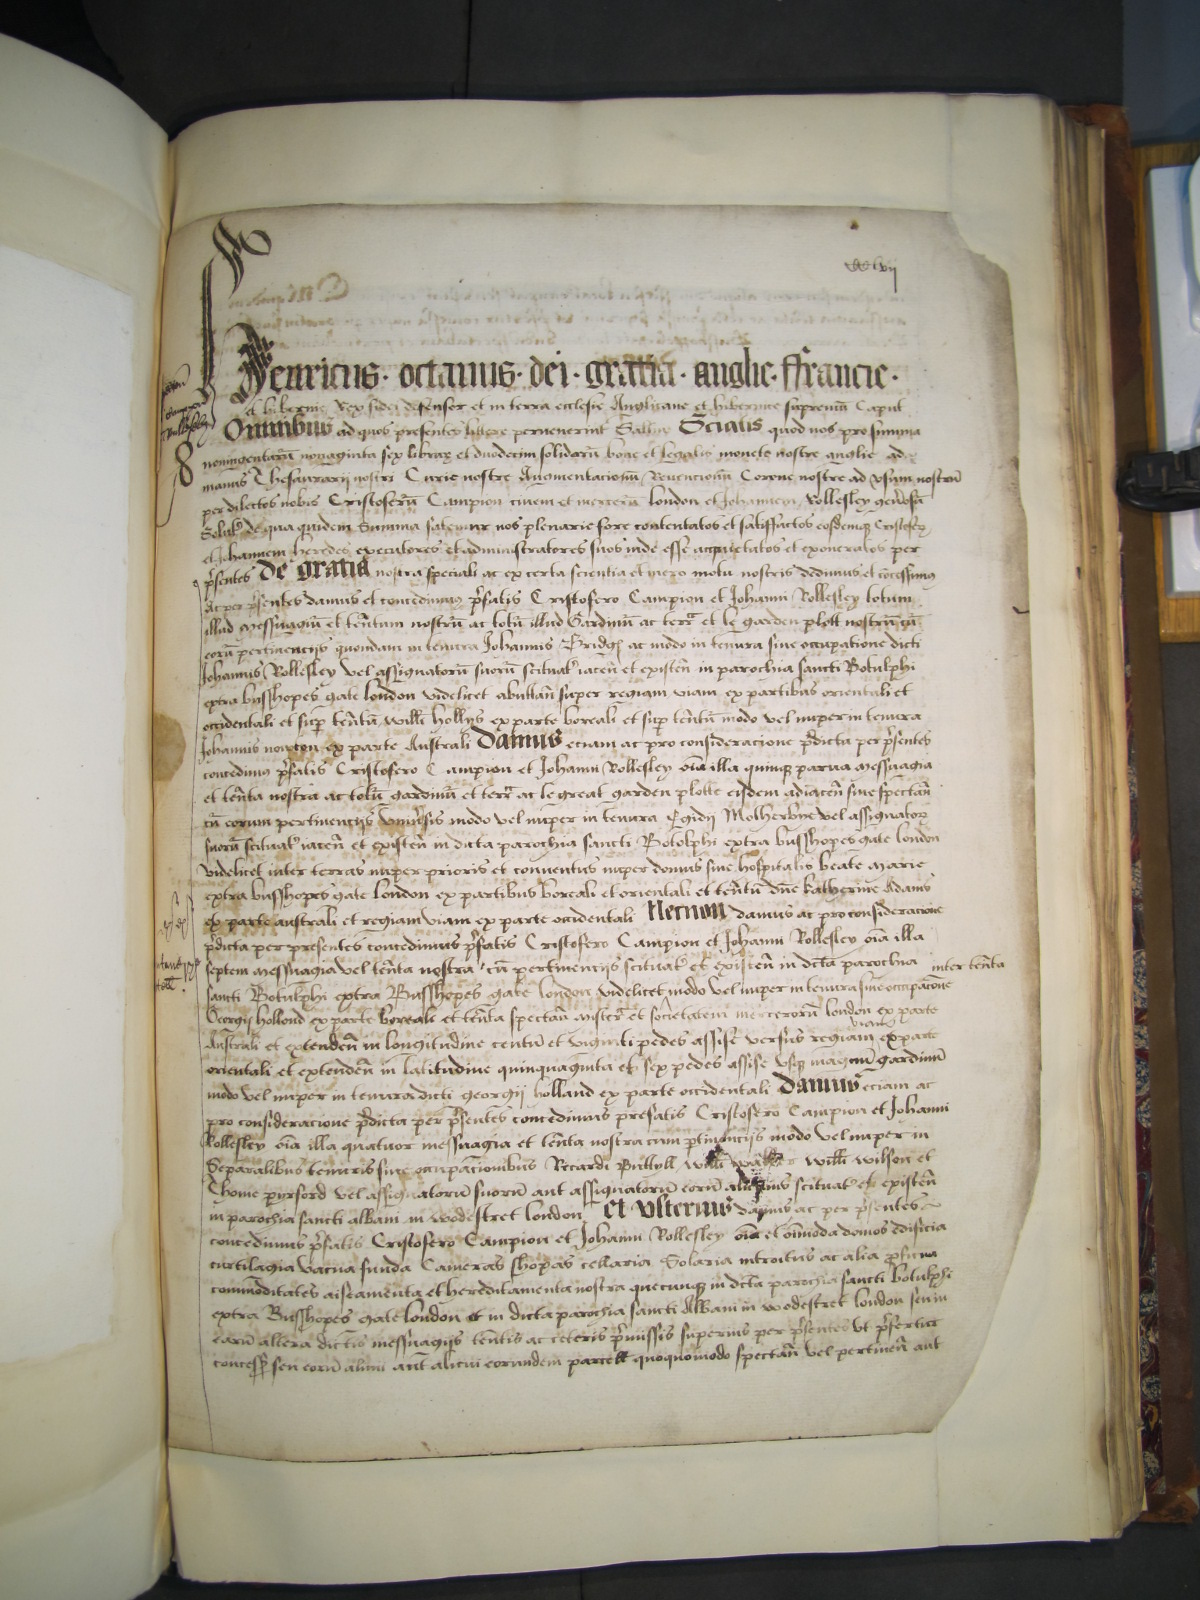 xxlvii
Henricus · octauus · dei · gratia · anglie · ffrancie ·
et hibernie Rex fidei defensor et in terra ecclesie Anglicane et hibernice supremũ Caput
Omnibus ad quos presentes littere peruenerint Saltm̃ Sciatis quod nos pro summa
noningentarũ nonaginta sex librar et duodecim solidorũ bone et legalis monete nostre anglie ad
manus Thesaurarij nostri Curie nostre Augmentacionũ Reuencionũ Corone nostre ad vsum nostrũ
per dilectos nobis Cristoferũ Campion ciuem et mercerũ london et Johannem Rollesley gen̄osũ
Solut̄ de qua quidem Summa fatemur nos plenarie fore contentatos et satisfactos eosdemq̨ Cristofer̄
et Johannem heredes executores et administratores suos inde esse acquietatos et exoneratos per
p̄sentes De gratia nostra speciali ac ex certa scientia et mero motu nostris dedimus et cōcessimus
Ac per p̄sentes damus et concedimus p̄fatis Cristofero Campion et Johanni Rollesley totum
illud messuagiũ et ten̄tum nostrũ ac totũ illud Gardinũ ac terr̄ et le garden plott nostrũ cũ
eorũ pertinencijs quondam in tenura Johannis Bridg̨ ac modo in tenura siue occupatione dicti
Johannis Rollesley vel assignatorũ suorũ scituat̄ iacen̄ et existen̄ in parochia sancti Botulphi
extra busshopes gate london videlicet abuttan̄ super regiam viam ex partibus orientali et
occidentali et sup̄ ten̄tũ willi̅ hollys ex parte boreali et sup̄ ten̄tũ modo vel nuper in tenura
Johannis newton ex parte Australi Damus eciam ac pro consideracione p̄dicta per p̄sentes
concedim̨ p̄fatis Cristofero Campion et Johanni Rollesley oīa illa quinq̨ parua messuagia
et ten̄ta nostra ac totũ gardinũ et terr̄ ac le great garden plotte eisdem adiacen̄ siue spectan̄
cũ eorum pertinencijs vniu̅sis modo vel nuper in tenura Egidij Motherbye vel assignator̄
suorũ scituat̄ iacen̄ et existen̄ in dicta parochia sancti Botolphi extra busshopes gate london
videlicet inter terras nuper prioris et conuentus nuper domus siue hospitalis beate marie
extra busshopes gate london ex partibus boreali et orientali et ten̄tũ dn̄e katherine Adams
ex parte australi et regiam viam ex parte occidentali Necnon damus ac pro consideracione
p̄dicta per presentes concedimus p̄fatis Cristofero Campion et Johanni Rollesley oīa illa
septem messuagia vel ten̄ta nostra cũ pertinencijs scituat̄ et existen̄ in dc̄ta parochia inter ten̄ta
sancti Botulphi extra Busshopes gate london videlicet modo vel nuper in tenura siue occupacōne
Georgij holland ex parte boreali et ten̄ta spectan̄ mister̄ et societatem mercerorũ london ex parte
Australi et extenden̄ in longitudine centũ et viginti pedes assise versus regiam viam ex parte
orientali et extenden̄ in latitudine quinquaginta et sex pedes assise vsq̨ magnũ gardinũ
modo vel nuper in tenura dicti georgij holland ex parte occidentali Damus eciam ac
pro consideracione p̄dicta per p̄sentes concedimus prefatis Cristofero Campion et Johanni
Rollesley oīa illa quatuor messuagia et ten̄ta nostra cum ptinencijs modo vel nuper in
Separalibus tenuris siue occupacionibus Ricardi willi̅ willi̅ wilson et
Thome pyrford vel assignatorũ suorũ aut assignatorũ eorũ alicuius scituat̄ et existen̄
in parochia sancti albani in wodestret london Et vlterius damus ac per p̄sentes
concedimus p̄fatis Cristofero Campion et Johanni Rollesley oīa et oīmoda domos edificia
curtilagia vacua funda Cameras shopas cellaria Solaria introitus ac alia p̄ficua
commoditates aiseamenta et hereditamenta nostra quecunq̨ in dc̄ta parochia sancti botulphi
extra Busshopes gate london et in dicta parochia sancti Albani in wodestret london seu in
earũ altera dictis messuagijs ten̄tis ac ceteris p̄missis superius per p̄sentes vt p̄fertur
concess̄ seu eorũ alicui aut alicui eorundem parcell̄ quoquomodo spectan̄ vel pertinen̄ aut